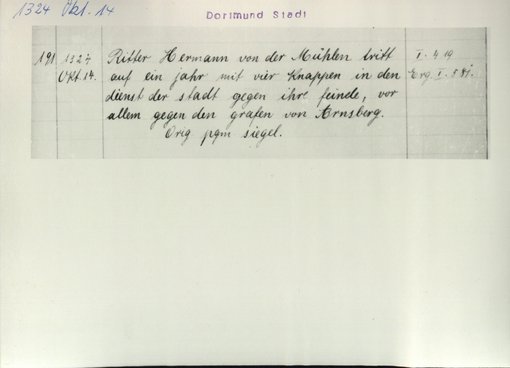 1324 Okt. 14
Dortmund Stadt
191. 1324 Ritter Hermann von der Mühlen tritt I. 419
Okt 14. auf ein jahr mit vier Knappen in den Erg. I.
dienst der stadt gegen ihre feinde, vor
allem gegen den grafen von Arnsberg.
Orig pgm siegel.